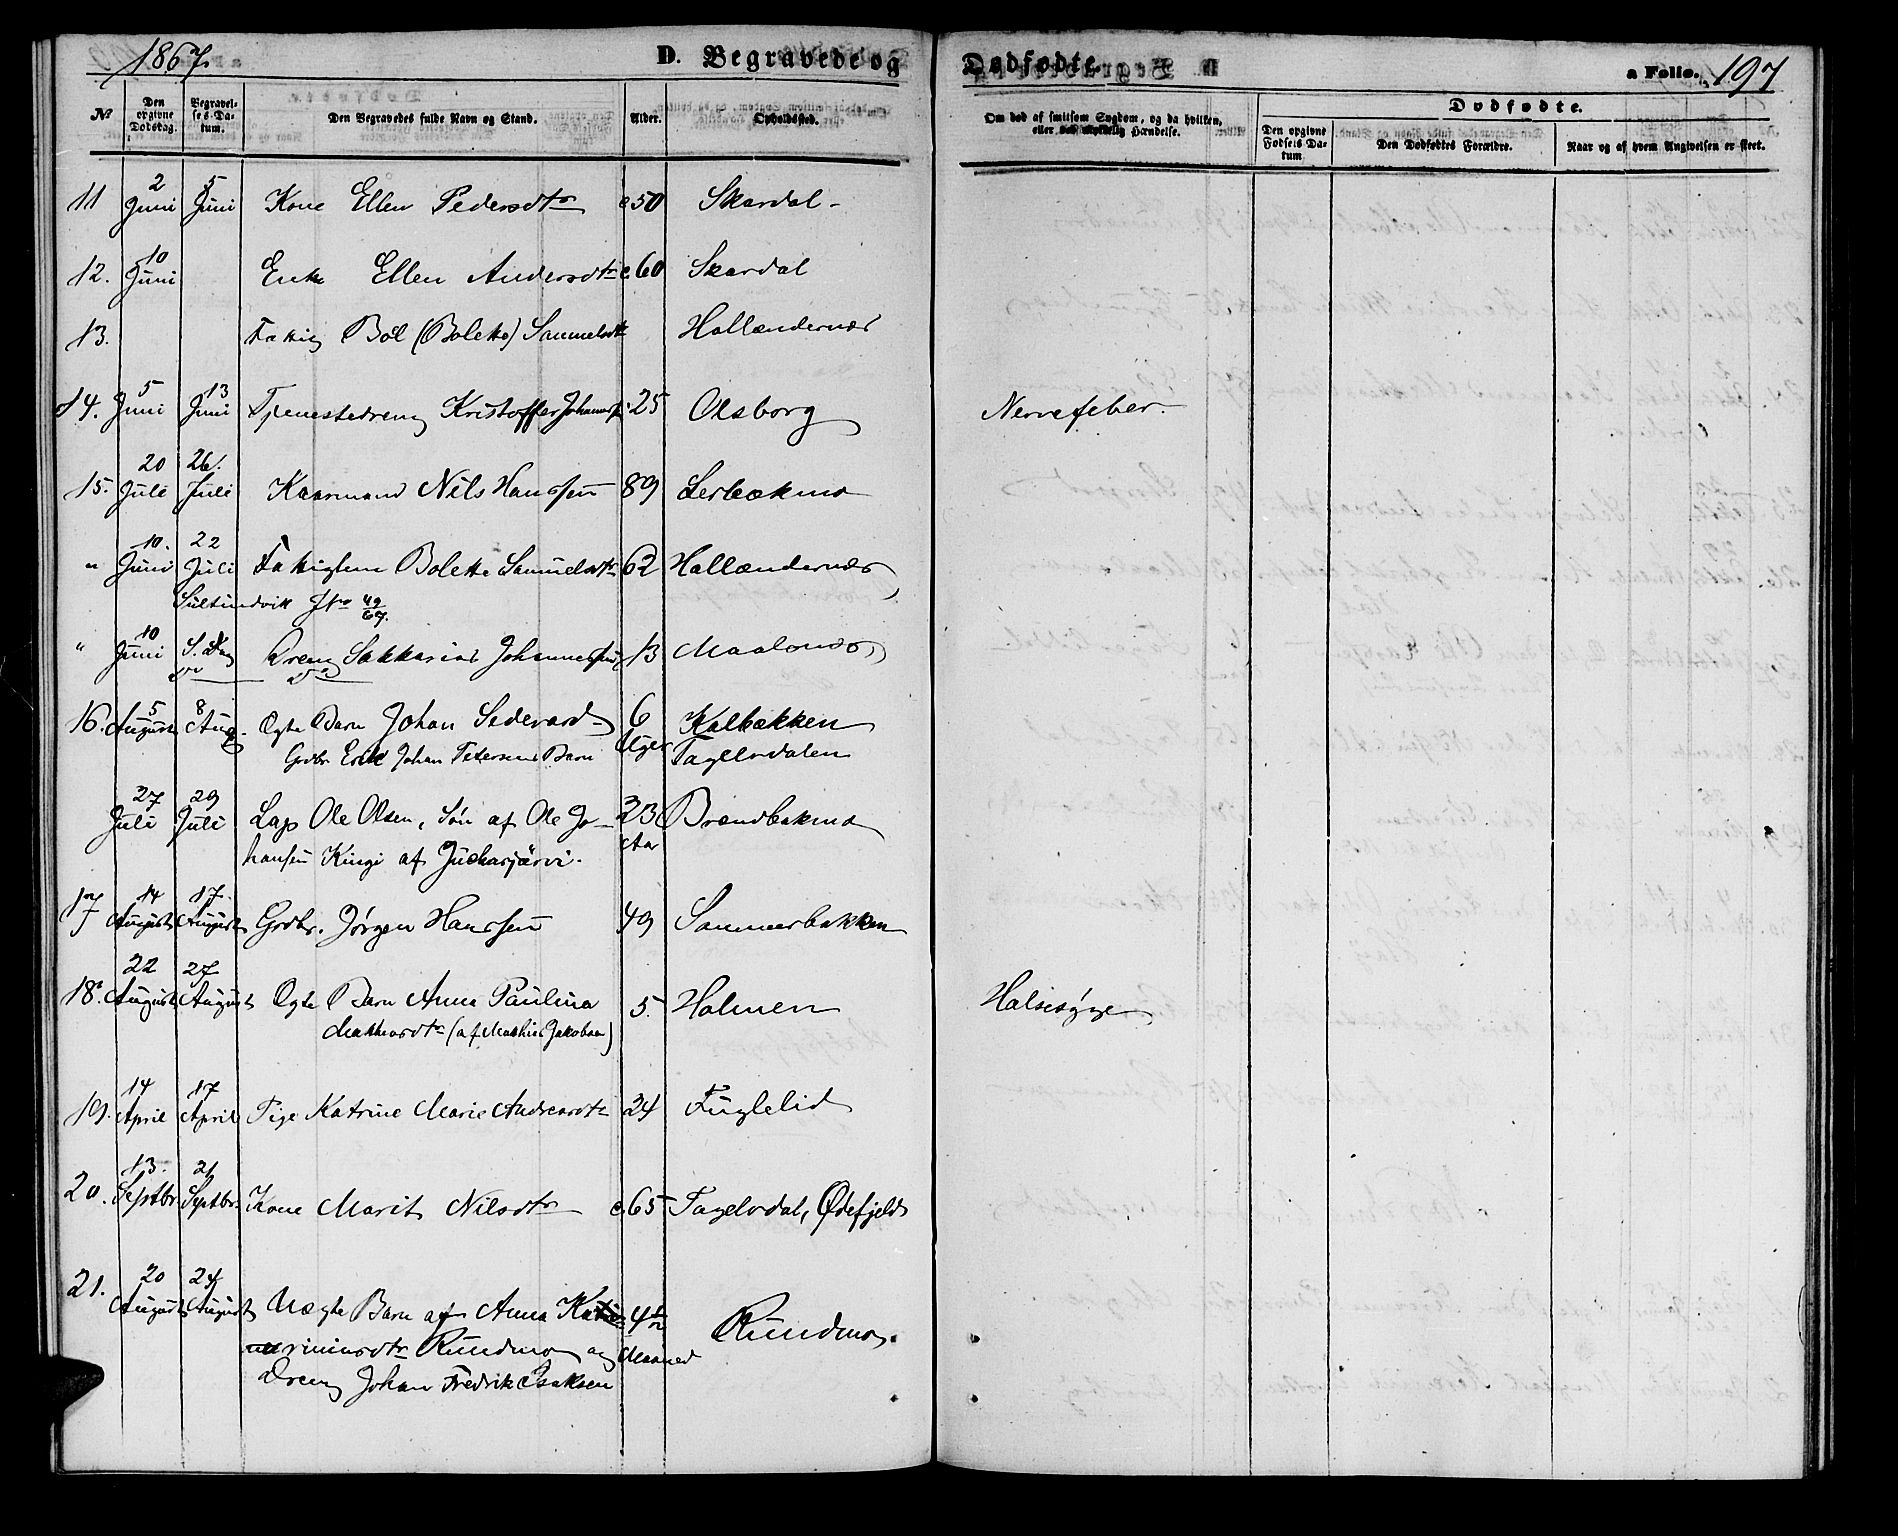 1867.
D. Begravede og Dødfødte.
a Folio. 197
No
Den opgivne Dødsdag.
Begravelses-Datum.
Den Begravedes fulde Navn og Stand.
Alder.
Opholdssted.
Om død af smitsom Sygdom, og da hvilken, eller ved ulykkelig Hændelse.
Dødfødte.
Den opgivne Fødsels Datum
Den Dødfødtes Forældre.
Naar og af hvem Angivelsen er skeet.
11 2 Juni 5 Juni Kone Ellen Pedersdtr c 50 Skardal
12. 10 Juni Enke Ellen Andersdtr c. 60 Skardal
13. Fattig Böl (Bolette) Samuelsdtr Hollændernæs
14. 5 Juni 13 Juni Tjenestedreng Kristoffer Johannesen 25 Olsborg Nervefeber.
15. 20 Juli 26. Juli Kaarmand Nils Hanssen 89 Lerbækmo
" 10. Juni 22 Juli Fattiglem Bolette Samuelsdtr 62 Hollændernæs
Sultindvik JNo 49/67.
" 10 Juni S. Dag Dreng Sakkarias Johannessen 13 Maalsnæs
16. 5 August 8 Aug. Ægte Barn Johan Sedevard 6 Uger Kalbækken
Grdbr. Erik Johan Petersens Barn Tagelvdalen
27 Juli 29 Juli Lap Ole Olsen, Søn af Ole Jo- 23 Aar Brændbakmo
hansen Kingi af Juckasjärvi.
17 14 August 17. August Grdbr. Jørgen Hanssen 49 Sommerbakken
18. 22 August 27 August Ægte Barn Anna Paulina 5. Holmen Halsesyge
Mathisdtr (af Mathis Jakobsen)
19. 14 April 17 April Pige Katrine Marie Andreasdtr 24 Fuglelid
20. 13. Septbr. 21 Septbr. Kone Marit Nilsdtr c. 65 Tagelvdal, Ødefjeld
21. 20 August 24 August Uægte Barn af Anna 4 1/2 Maaned Rundmo.
Rundmo og
Dreng Johan Fredrik Isaksen